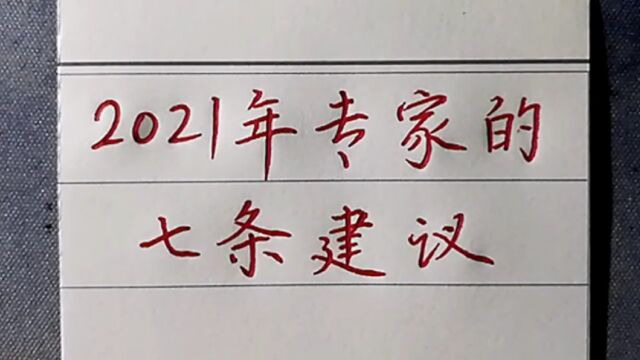 2021年专家的
七条建议